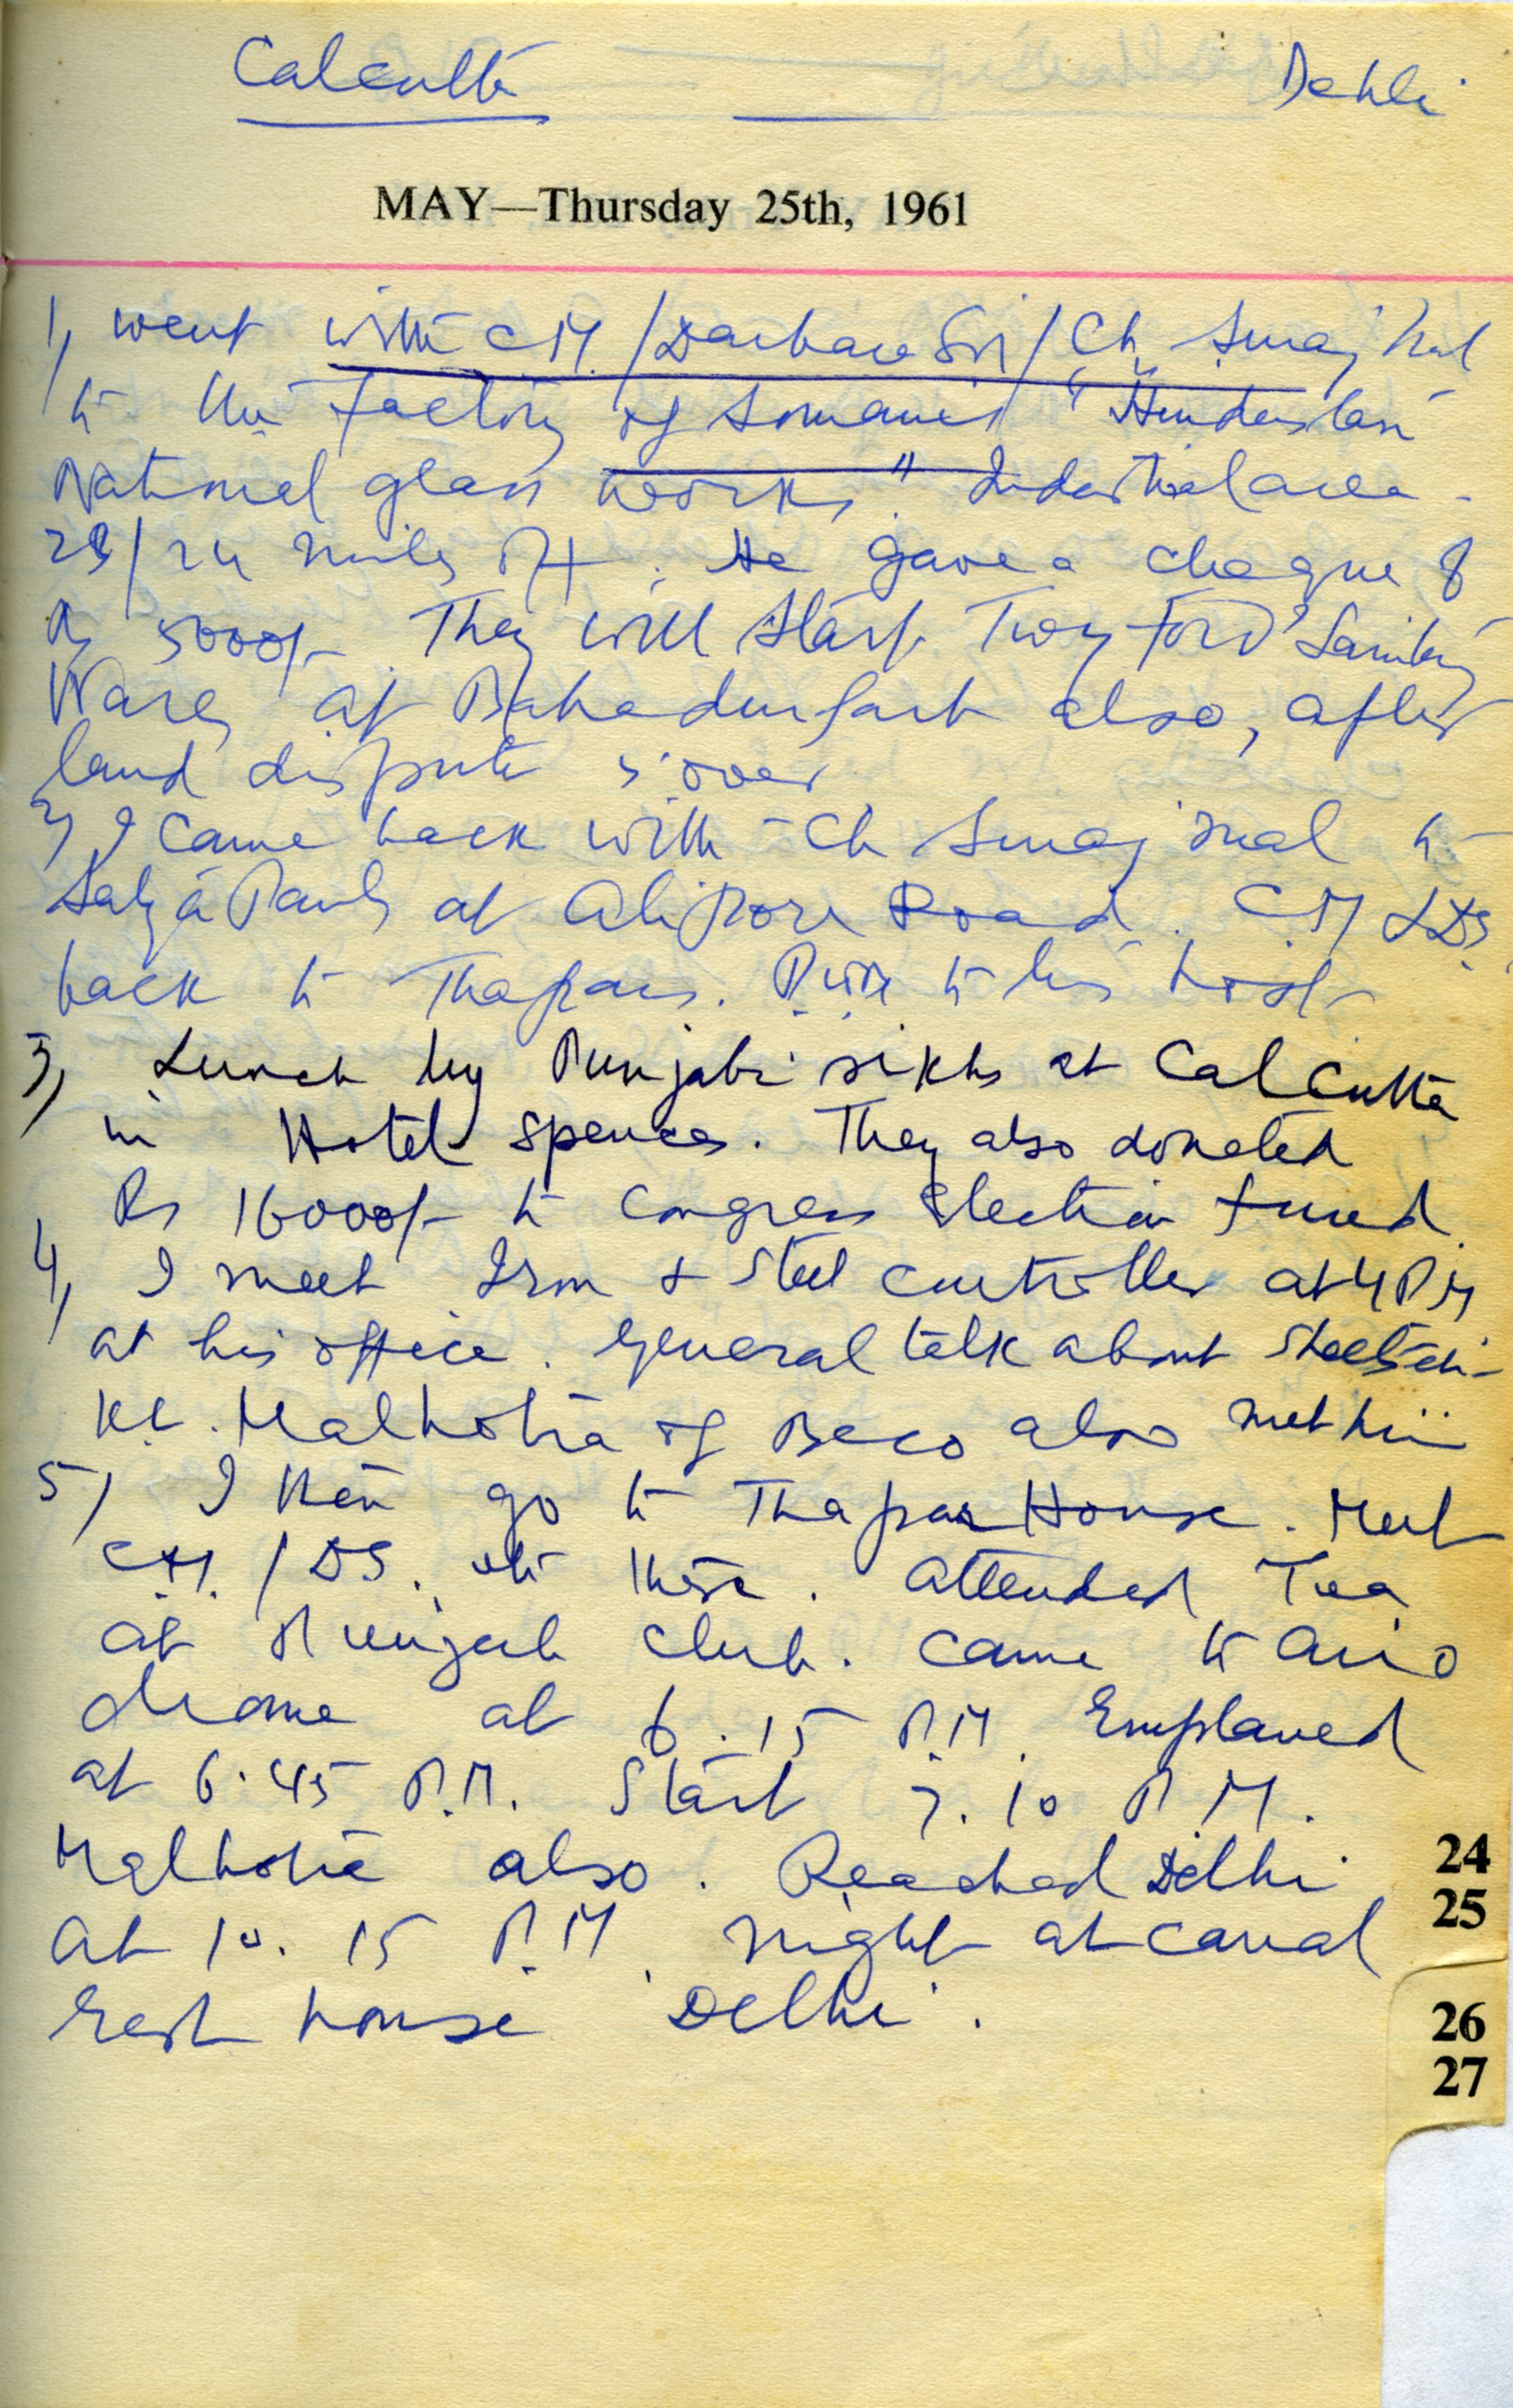 Calcutta Dehli
MAY—Thursday 25th, 1961
1, went with C M. / Darbara Sn / Ch Suraj Mal
to the factory of Somanis "Hindustan
National glass works" Industrial area -
23/24 miles off. He gave a cheque of
Rs 5000/- They will start Twyford Sanitary
Wares at Bahadurgarh also, after
land dispute is over
2, I came back with Ch Suraj mal to
Satya Pauls at Alipore Road. C M & DS.
back to Thapars. to his host
3, Lunch by Punjabi sikhs at Calcutta
in Hotel spences. They also donated
Rs 16000/- to Congress Election fund.
4, I meet Iron & Steel Controller at 4 P M
at his office. General talk about
K.C. Malhotra of Beco also met him
5, I then go to Thapar House. Meet
C.M. / DS. etc there. Attended Tea
at Punjab Club. Came to Airo
drome at 6.15 P.M. Emplaned
at 6.45 P.M. Start 7.10 P.M.
Malhotra also. Reached Delhi
at 10.15 P.M. night at canal
rest house Delhi.
24
25
26
27